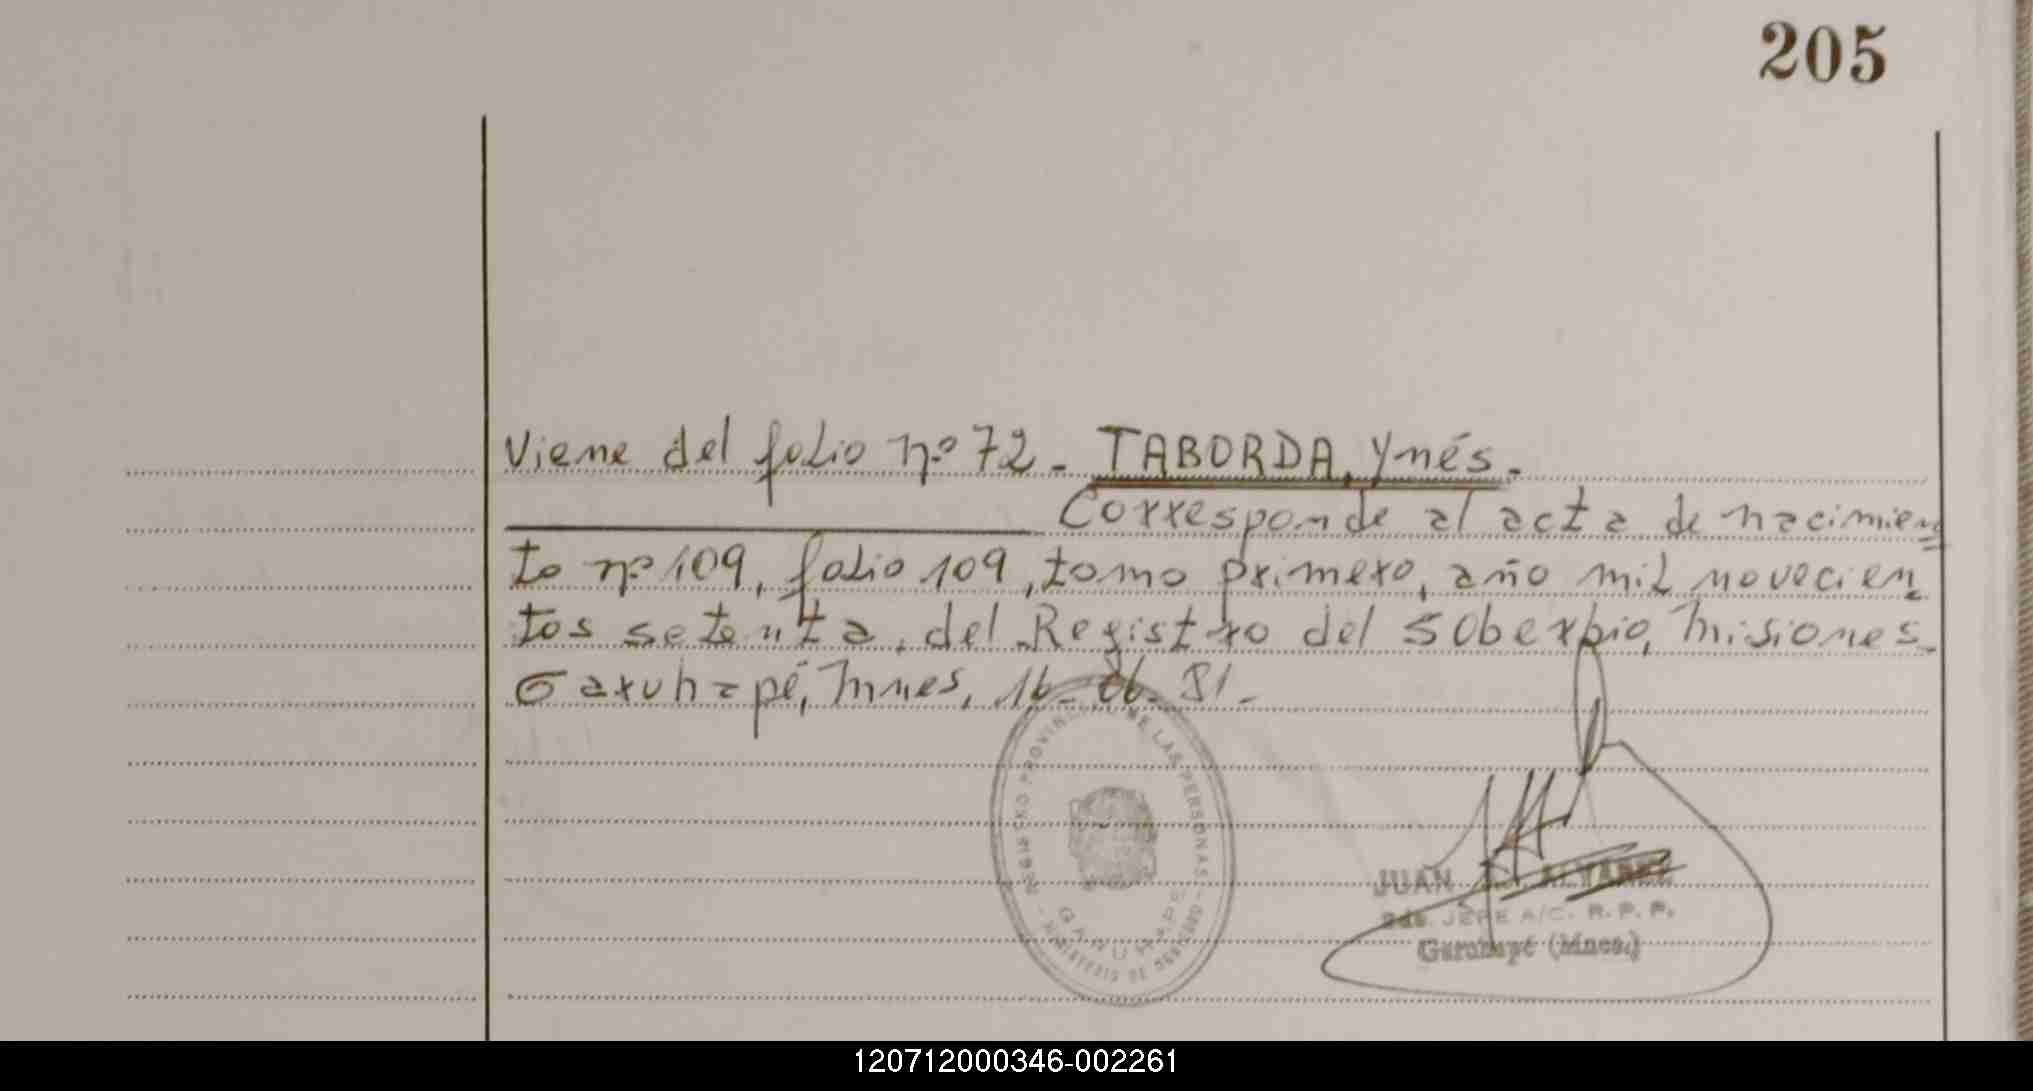 205
Viene del folio nº 72 - TABORDA, Ynés.-
Corresponde al acta de nacimien
to nº 109, folio 109, tomo primero, año mil novecien
tos setenta, del Registro del Soberbio, Misiones.
Garuhapé, Mnes, 16-06-81.-
REGISTRO PROVINCIAL DE LAS PERSONAS - MINISTERIO DE GOBIERNO -
GARUHAPE
JUAN ALVAREZ
JEFE A/C. R. P. P.
Garuhapé (Mnes.)
120712000346-002261